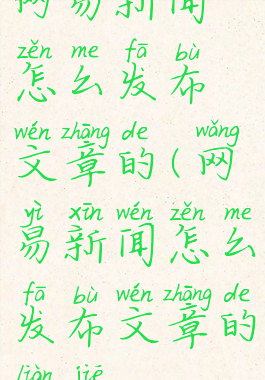 网易新闻
zěn me fā bù
怎么发布
wén zhāng de wǎng
文章的(网
yì xīn wén zěn me
易新闻怎么
fā bù wén zhāng de
发布文章的
liàn jiē